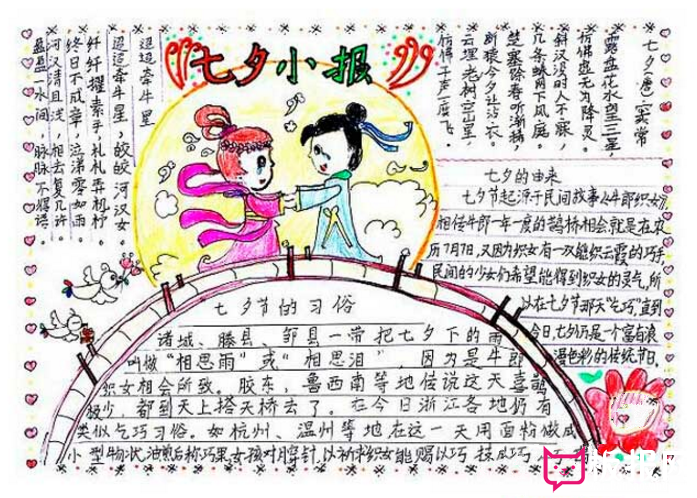 七夕小报
七夕(唐)窦常
露盘花水望三星,
仿佛虚无为降灵。
斜汉没时人不寐,
几条蛛网下风庭。
楚塞余春听渐稀,
断猿今夕让沾衣
云埋老树空山里,
仿佛千声一度飞。
迢迢牵牛星
迢迢牵牛星,皎皎河汉女
纤纤擢素手,札札弄机杼
终日不成章,泣涕零如雨
河汉清且浅,相去复几许
盈盈一水间,脉脉不得语
七夕的由来
七夕节起源于民间故事《牛郎织女》
相传牛郎一年一度的鹊桥相会就是在农
历7月7,又因为织女有一双能织云霞的巧手
民间的少女们希望能得到织女的灵气,所
以在七夕节那天"乞巧",直到
今日七夕仍是一个富有浪
漫色彩的传统节日.
七夕节的习俗
诸城、滕县、邹县一带把七夕下的雨
叫做"相思雨"或"相思泪",因为是牛郎
织女相会所致。胶东,鲁西南等地传说这天喜鹊
极少,都到天上搭天桥去了。在今日浙江各地仍有
类似乞巧习俗。如杭州、温州等地在这一天用面粉做成
小型物状,油煎后称巧果,女孩对月穿针,以祈求织女能赐以巧